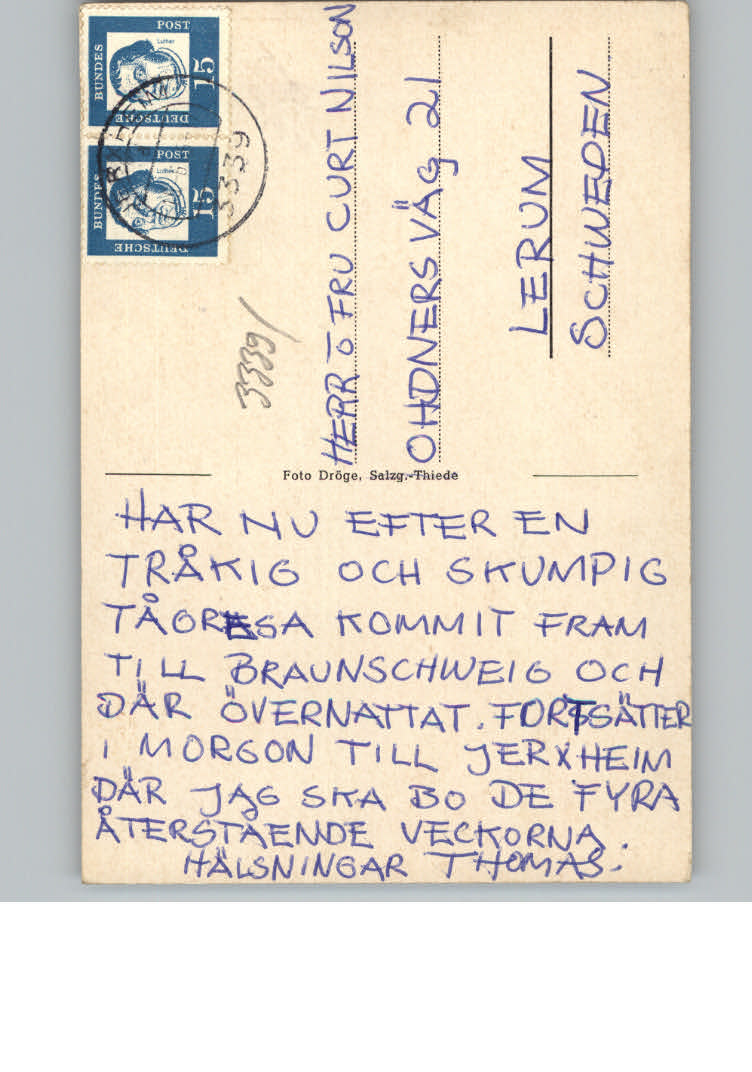 BUNDES
POST
Luther
15
DEUTSCHE
BUNDES
POST
Luther
15
DEUTSCHE
3339
3339/
HERR O FRU CURT NILSON
OHDNERS VÄG 21
LERUM
SCHWEDEN
Foto Dröge, Salzg.-Thiede
HAR NU EFTER EN
TRÅKIG OCH SKUMPIG
TÅGRESA KOMMIT FRAM
TILL BRAUNSCHWEIG OCH
DÄR ÖVERNATTAT. FORTSÄTTER
I MORGON TILL JERXHEIM
DÄR JAG SKA BO DE FYRA
ÅTERSTÅENDE VECKORNA.
HÄLSNINGAR THOMAS.